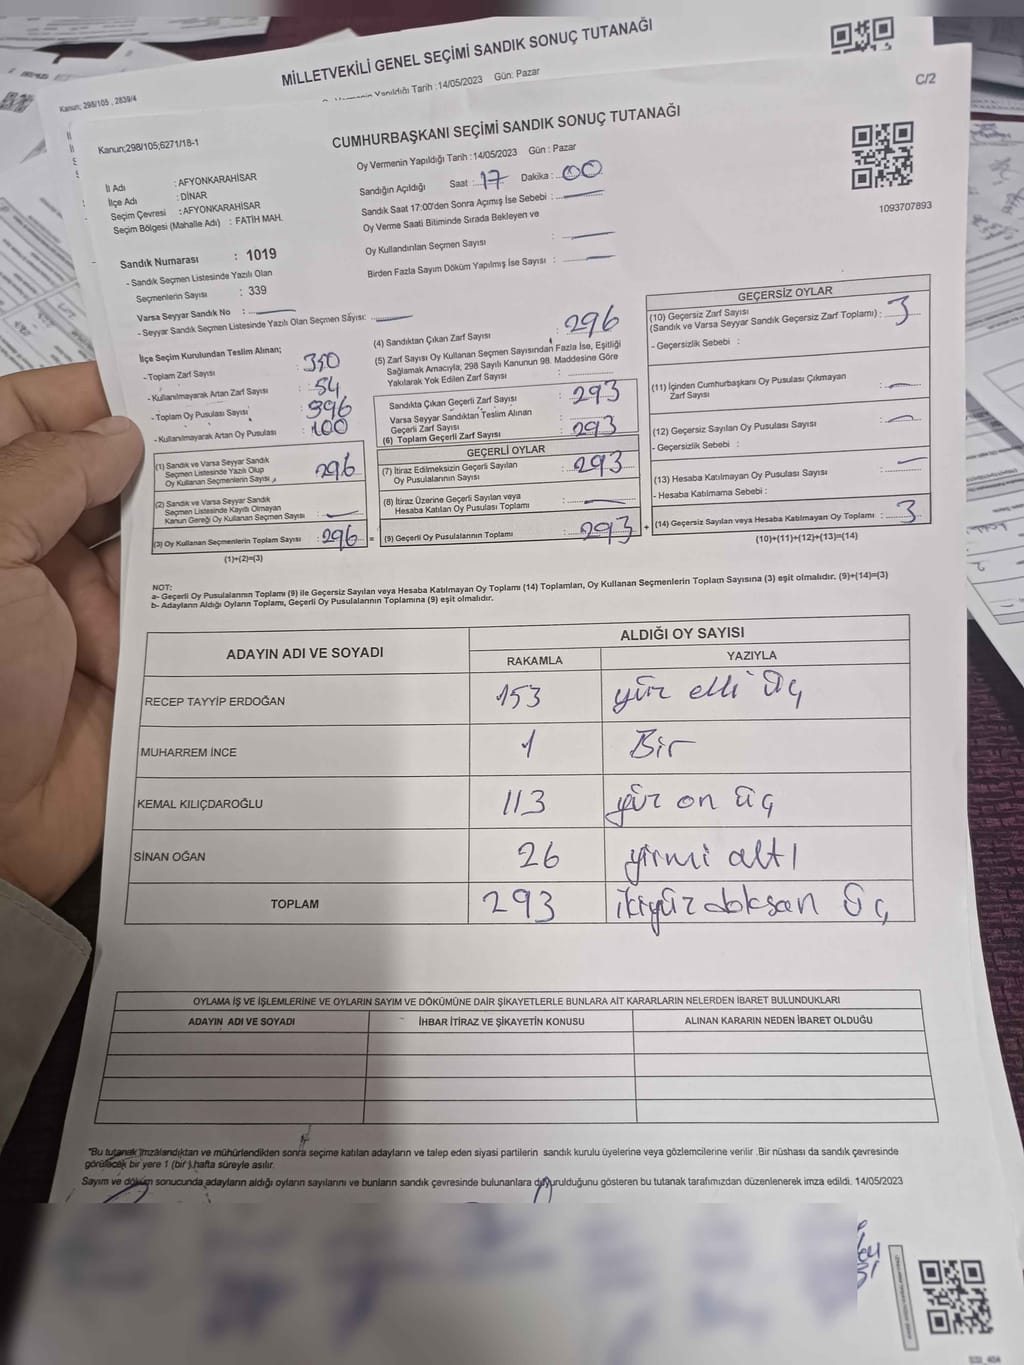 MİLLETVEKİLİ GENEL SEÇİMİ SANDIK SONUÇ TUTANAĞI
Kanun; 298/105 , 2839/4
Yapıldığı Tarih :14/05/2023 Gün: Pazar
C/2
Kanun;298/105;6271/18-1
CUMHURBAŞKANI SEÇİMİ SANDIK SONUÇ TUTANAĞI
Oy Vermenin Yapıldığı Tarih :14/05/2023 Gün : Pazar
1093707893
İl Adı : AFYONKARAHİSAR
İlçe Adı : DİNAR
Seçim Çevresi : AFYONKARAHİSAR
Seçim Bölgesi (Mahalle Adı) : FATİH MAH.
Sandığın Açıldığı Saat : 17 Dakika : 00
Sandık Saat 17:00'den Sonra Açımış İse Sebebi :
Oy Verme Saati Bitiminde Sırada Bekleyen ve
Oy Kullandırılan Seçmen Sayısı :
Birden Fazla Sayım Döküm Yapılmış İse Sayısı :
Sandık Numarası : 1019
- Sandık Seçmen Listesinde Yazılı Olan
Seçmenlerin Sayısı : 339
Varsa Seyyar Sandık No :
- Seyyar Sandık Seçmen Listesinde Yazılı Olan Seçmen Sayısı:
İlçe Seçim Kurulundan Teslim Alınan;
- Toplam Zarf Sayısı : 350
- Kullanılmayarak Artan Zarf Sayısı : 54
- Toplam Oy Pusulası Sayısı : 396
- Kullanılmayarak Artan Oy Pusulası : 100
(1) Sandık ve Varsa Seyyar Sandık
Seçmen Listesinde Yazılı Olup
Oy Kullanan Seçmenlerin Sayısı : 296
(2) Sandık ve Varsa Seyyar Sandık
Seçmen Listesinde Kayıtlı Olmayan
Kanun Gereği Oy Kullanan Seçmen Sayısı :
(3) Oy Kullanan Seçmenlerin Toplam Sayısı : 296 =
(1)+(2)=(3)
(4) Sandıktan Çıkan Zarf Sayısı : 296
(5) Zarf Sayısı Oy Kullanan Seçmen Sayısından Fazla İse, Eşitliği
Sağlamak Amacıyla, 298 Sayılı Kanunun 98. Maddesine Göre
Yakılarak Yok Edilen Zarf Sayısı :
Sandıkta Çıkan Geçerli Zarf Sayısı : 293
Varsa Seyyar Sandıktan Teslim Alınan
Geçerli Zarf Sayısı :
(6) Toplam Geçerli Zarf Sayısı : 293
GEÇERLİ OYLAR
(7) İtiraz Edilmeksizin Geçerli Sayılan
Oy Pusulalarının Sayısı : 293
(8) İtiraz Üzerine Geçerli Sayılan veya
Hesaba Katılan Oy Pusulası Toplamı :
(9) Geçerli Oy Pusulalarının Toplamı : 293 +
GEÇERSİZ OYLAR
(10) Geçersiz Zarf Sayısı
(Sandık ve Varsa Seyyar Sandık Geçersiz Zarf Toplamı) : 3
- Geçersizlik Sebebi :
(11) İçinden Cumhurbaşkanı Oy Pusulası Çıkmayan
Zarf Sayısı :
(12) Geçersiz Sayılan Oy Pusulası Sayısı :
- Geçersizlik Sebebi :
(13) Hesaba Katılmayan Oy Pusulası Sayısı :
- Hesaba Katılmama Sebebi :
(14) Geçersiz Sayılan veya Hesaba Katılmayan Oy Toplamı : 3
(10)+(11)+(12)+(13)=(14)
NOT:
a- Geçerli Oy Pusulalarının Toplamı (9) ile Geçersiz Sayılan veya Hesaba Katılmayan Oy Toplamı (14) Toplamları, Oy Kullanan Seçmenlerin Toplam Sayısına (3) eşit olmalıdır. (9)+(14)=(3)
b- Adayların Aldığı Oyların Toplamı, Geçerli Oy Pusulalarının Toplamına (9) eşit olmalıdır.
ADAYIN ADI VE SOYADI ALDIĞI OY SAYISI
RAKAMLA YAZIYLA
RECEP TAYYİP ERDOĞAN 153 yüz elli üç
MUHARREM İNCE 1 Bir
KEMAL KILIÇDAROĞLU 113 yüz on üç
SİNAN OĞAN 26 yirmi altı
TOPLAM 293 ikiyüz doksan üç
OYLAMA İŞ VE İŞLEMLERİNE VE OYLARIN SAYIM VE DÖKÜMÜNE DAİR ŞİKAYETLERLE BUNLARA AİT KARARLARIN NELERDEN İBARET BULUNDUKLARI
ADAYIN ADI VE SOYADI İHBAR İTİRAZ VE ŞİKAYETİN KONUSU ALINAN KARARIN NEDEN İBARET OLDUĞU
"Bu tutanak imzalandıktan ve mühürlendikten sonra seçime katılan adayların ve talep eden siyasi partilerin sandık kurulu üyelerine veya gözlemcilerine verilir .Bir nüshası da sandık çevresinde
görülecek bir yere 1 (bir ) hafta süreyle asılır.
Sayım ve döküm sonucunda adayların aldığı oyların sayılarını ve bunların sandık çevresinde bulunanlara duyurulduğunu gösteren bu tutanak tarafımızdan düzenlenerek imza edildi. 14/05/2023